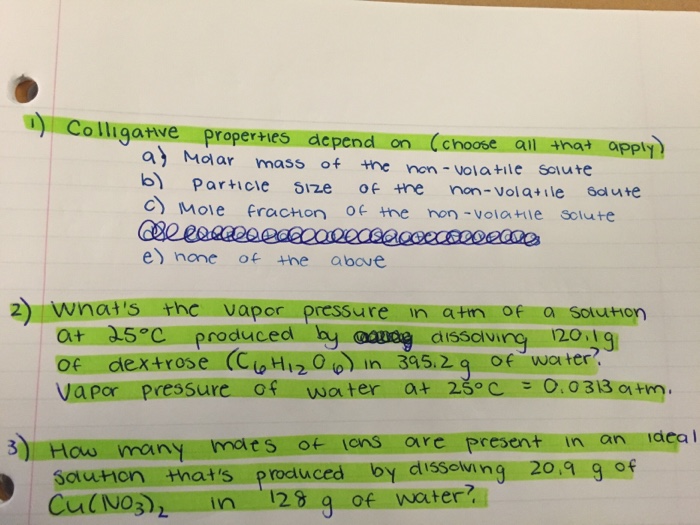 1) Colligative properties depend on (choose all that apply)
a) Molar mass of the non-volatile solute
b) Particle size of the non-volatile solute
c) Mole fraction of the non-volatile solute
e) none of the above
2) What's the vapor pressure in atm of a solution
at 25°C produced by dissolving 120.1g
of dextrose (C6H12O6) in 395.2 g of water?
Vapor pressure of water at 25°C = 0.0313 atm.
3) How many moles of ions are present in an ideal
solution that's produced by dissolving 20.9 g of
Cu(NO3)2 in 128 g of water?